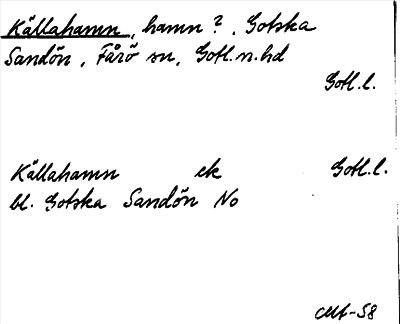 Källahamn, hamn?, Gotska
Sandön, Fårö sn, Gotl.n.hd
Gotl.l.
Källahamn ek Gotl.l.
bl. Gotska Sandön No
-58